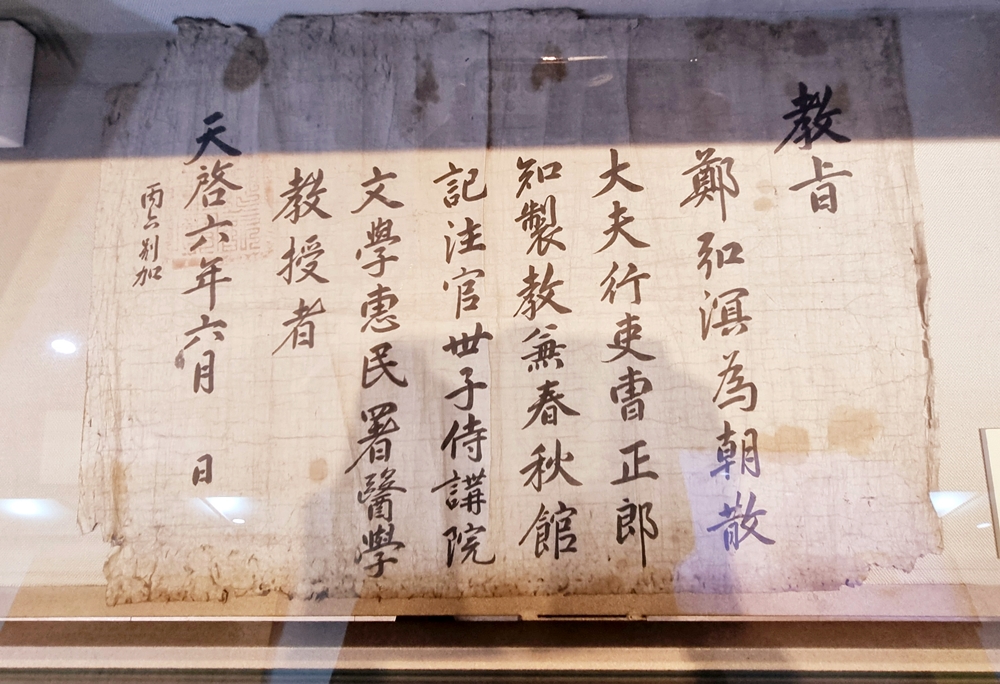 教旨
鄭弘溟為朝散
大夫行吏曺正郎
知製教兼春秋館
記注官世子侍講院
文學惠民署醫學
教授者
天啓六年六月 日
丙六別加